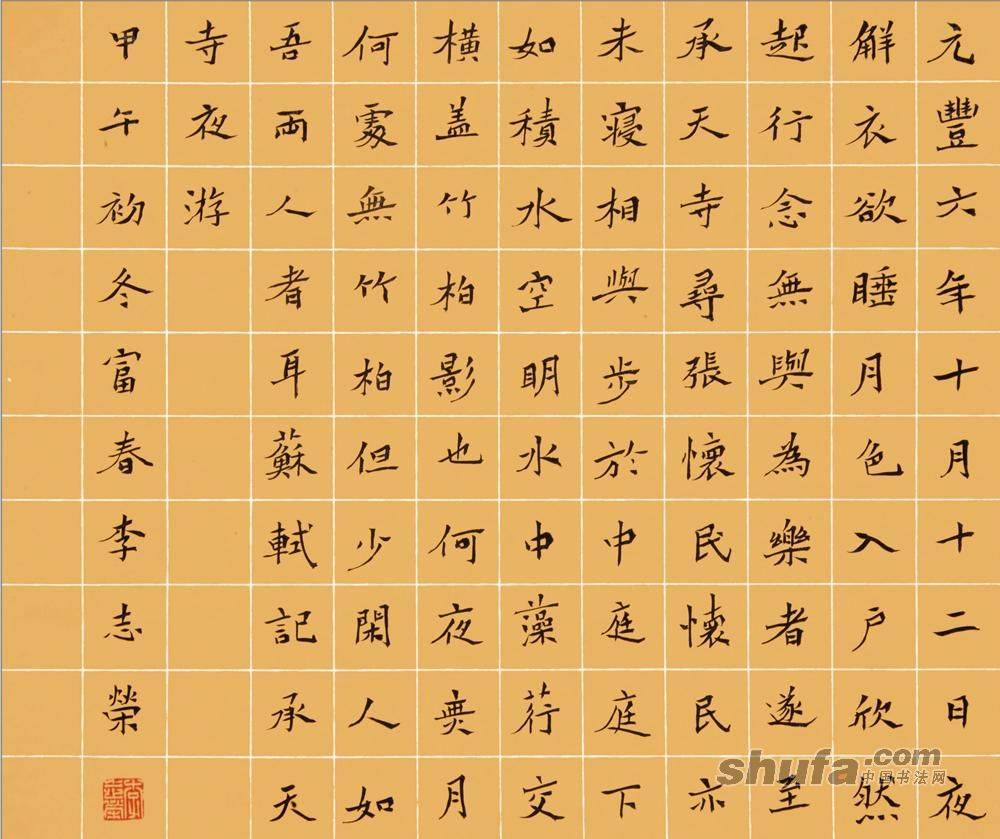 元豐六年十月十二日夜
解衣欲睡月色入戶欣然
起行念無與為樂者遂至
承天寺尋張懷民懷民亦
未寢相與步於中庭庭下
如積水空明水中藻荇交
橫盖竹柏影也何夜無月
何處無竹柏但少閑人如
吾兩人者耳蘇軾記承天
寺夜游
甲午初冬富春李志榮
shufa.com
中国书法网